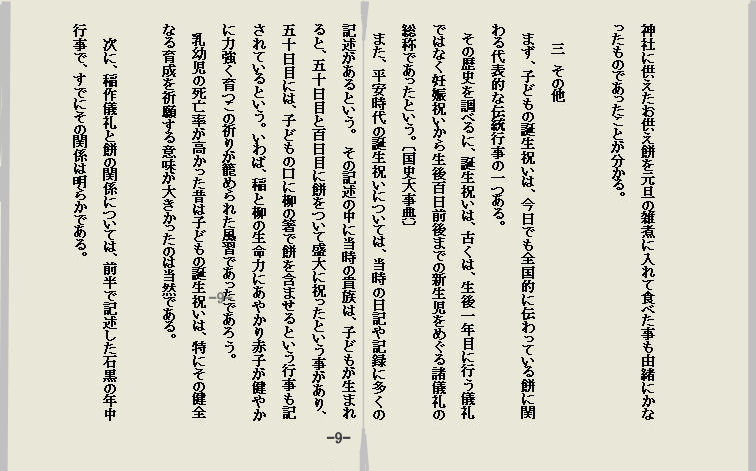 神社に供えたお供え餅を元旦の雑煮に入れて食べた事も由緒にかな
ったものであったことが分かる。
三　その他
まず、子どもの誕生祝いは、今日でも全国的に伝わっている餅に関
わる代表的な伝統行事の一つある。
その歴史を調べるに、誕生祝いは、古くは、生後一年目に行う儀礼
ではなく妊娠祝いから生後百日前後までの新生児をめぐる諸儀礼の
総称であったという。〔国史大事典〕
また、平安時代の誕生祝いについては、当時の日記や記録に多くの
記述があるという。その記述の中に当時の貴族は、子どもが生まれ
ると、五十日目と百日目に餅をついて盛大に祝ったという事があり、
五十日目には、子どもの口に柳の箸で餅を含ませるという行事も記
されているという。いわば、稲と柳の生命力にあやかり赤子が健やか
に力強く育つこの祈りが籠められた風習であったであろう。
乳幼児の死亡率が高かった昔は子どもの誕生祝いは、特にその健全
なる育成を祈願する意味が大きかったのは当然である。
次に、稲作儀礼と餅の関係については、前半で記述した石黒の年中
行事で、すでにその関係は明らかである。
-9-
-9-